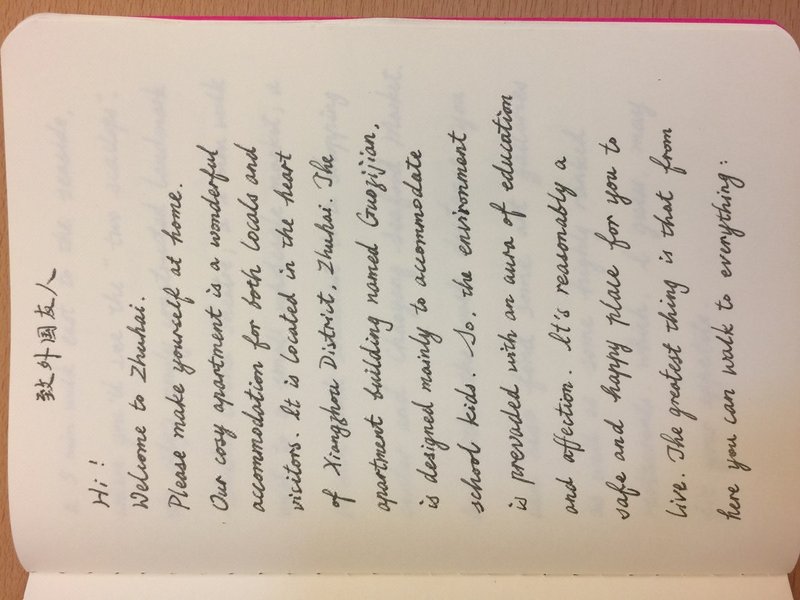 致外国友人
Hi!
Welcome to Zhuhai.
Please make yourself at home.
Our cosy apartment is a wonderful
accommodation for both locals and
vicitors. It is located in the heart
of Xiangzhou District, Zhuhai. The
apartment building named Guozijian,
is designed mainly to accommodate
school kids. So, the environment
is prevaded with an aura of education
and affection. It's reasonably a
safe and happy place for you to
live. The greatest thing is that from
here you can walk to everything: